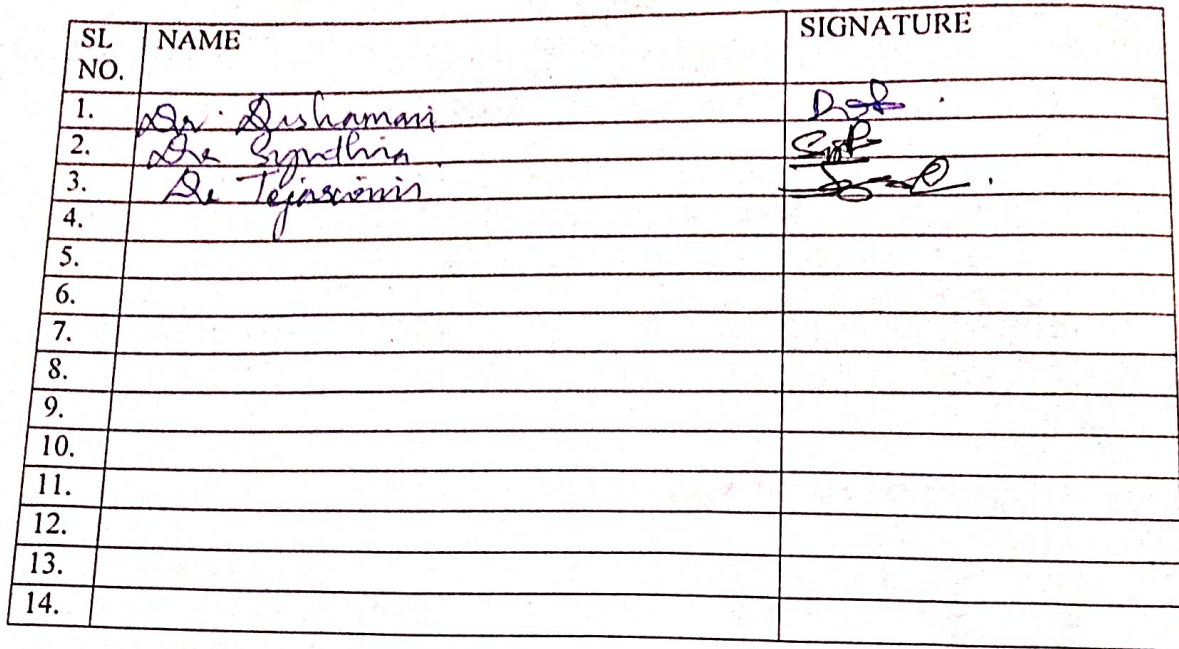 SL NO. NAME SIGNATURE
1. Dr. Dishamani
2. Dr Syndhia
3. Dr
4.
5.
6.
7.
8.
9.
10.
11.
12.
13.
14.